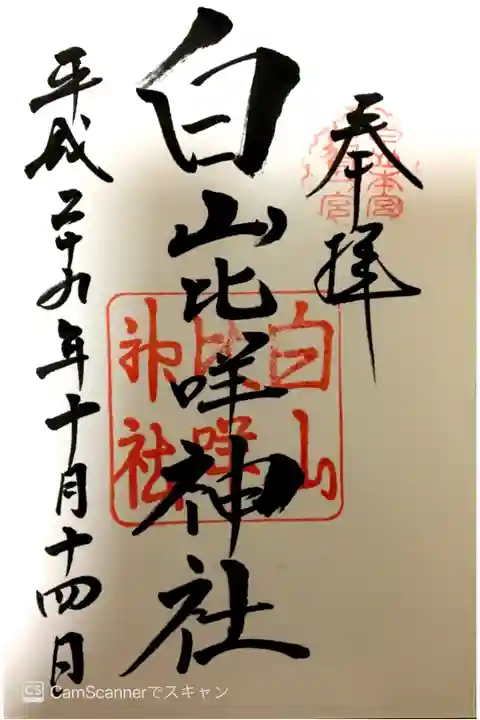 奉拝
白山本宮
白山比咩神社
白山
比咩
神社
平成二十九年十月十四日
CS CamScannerでスキャン